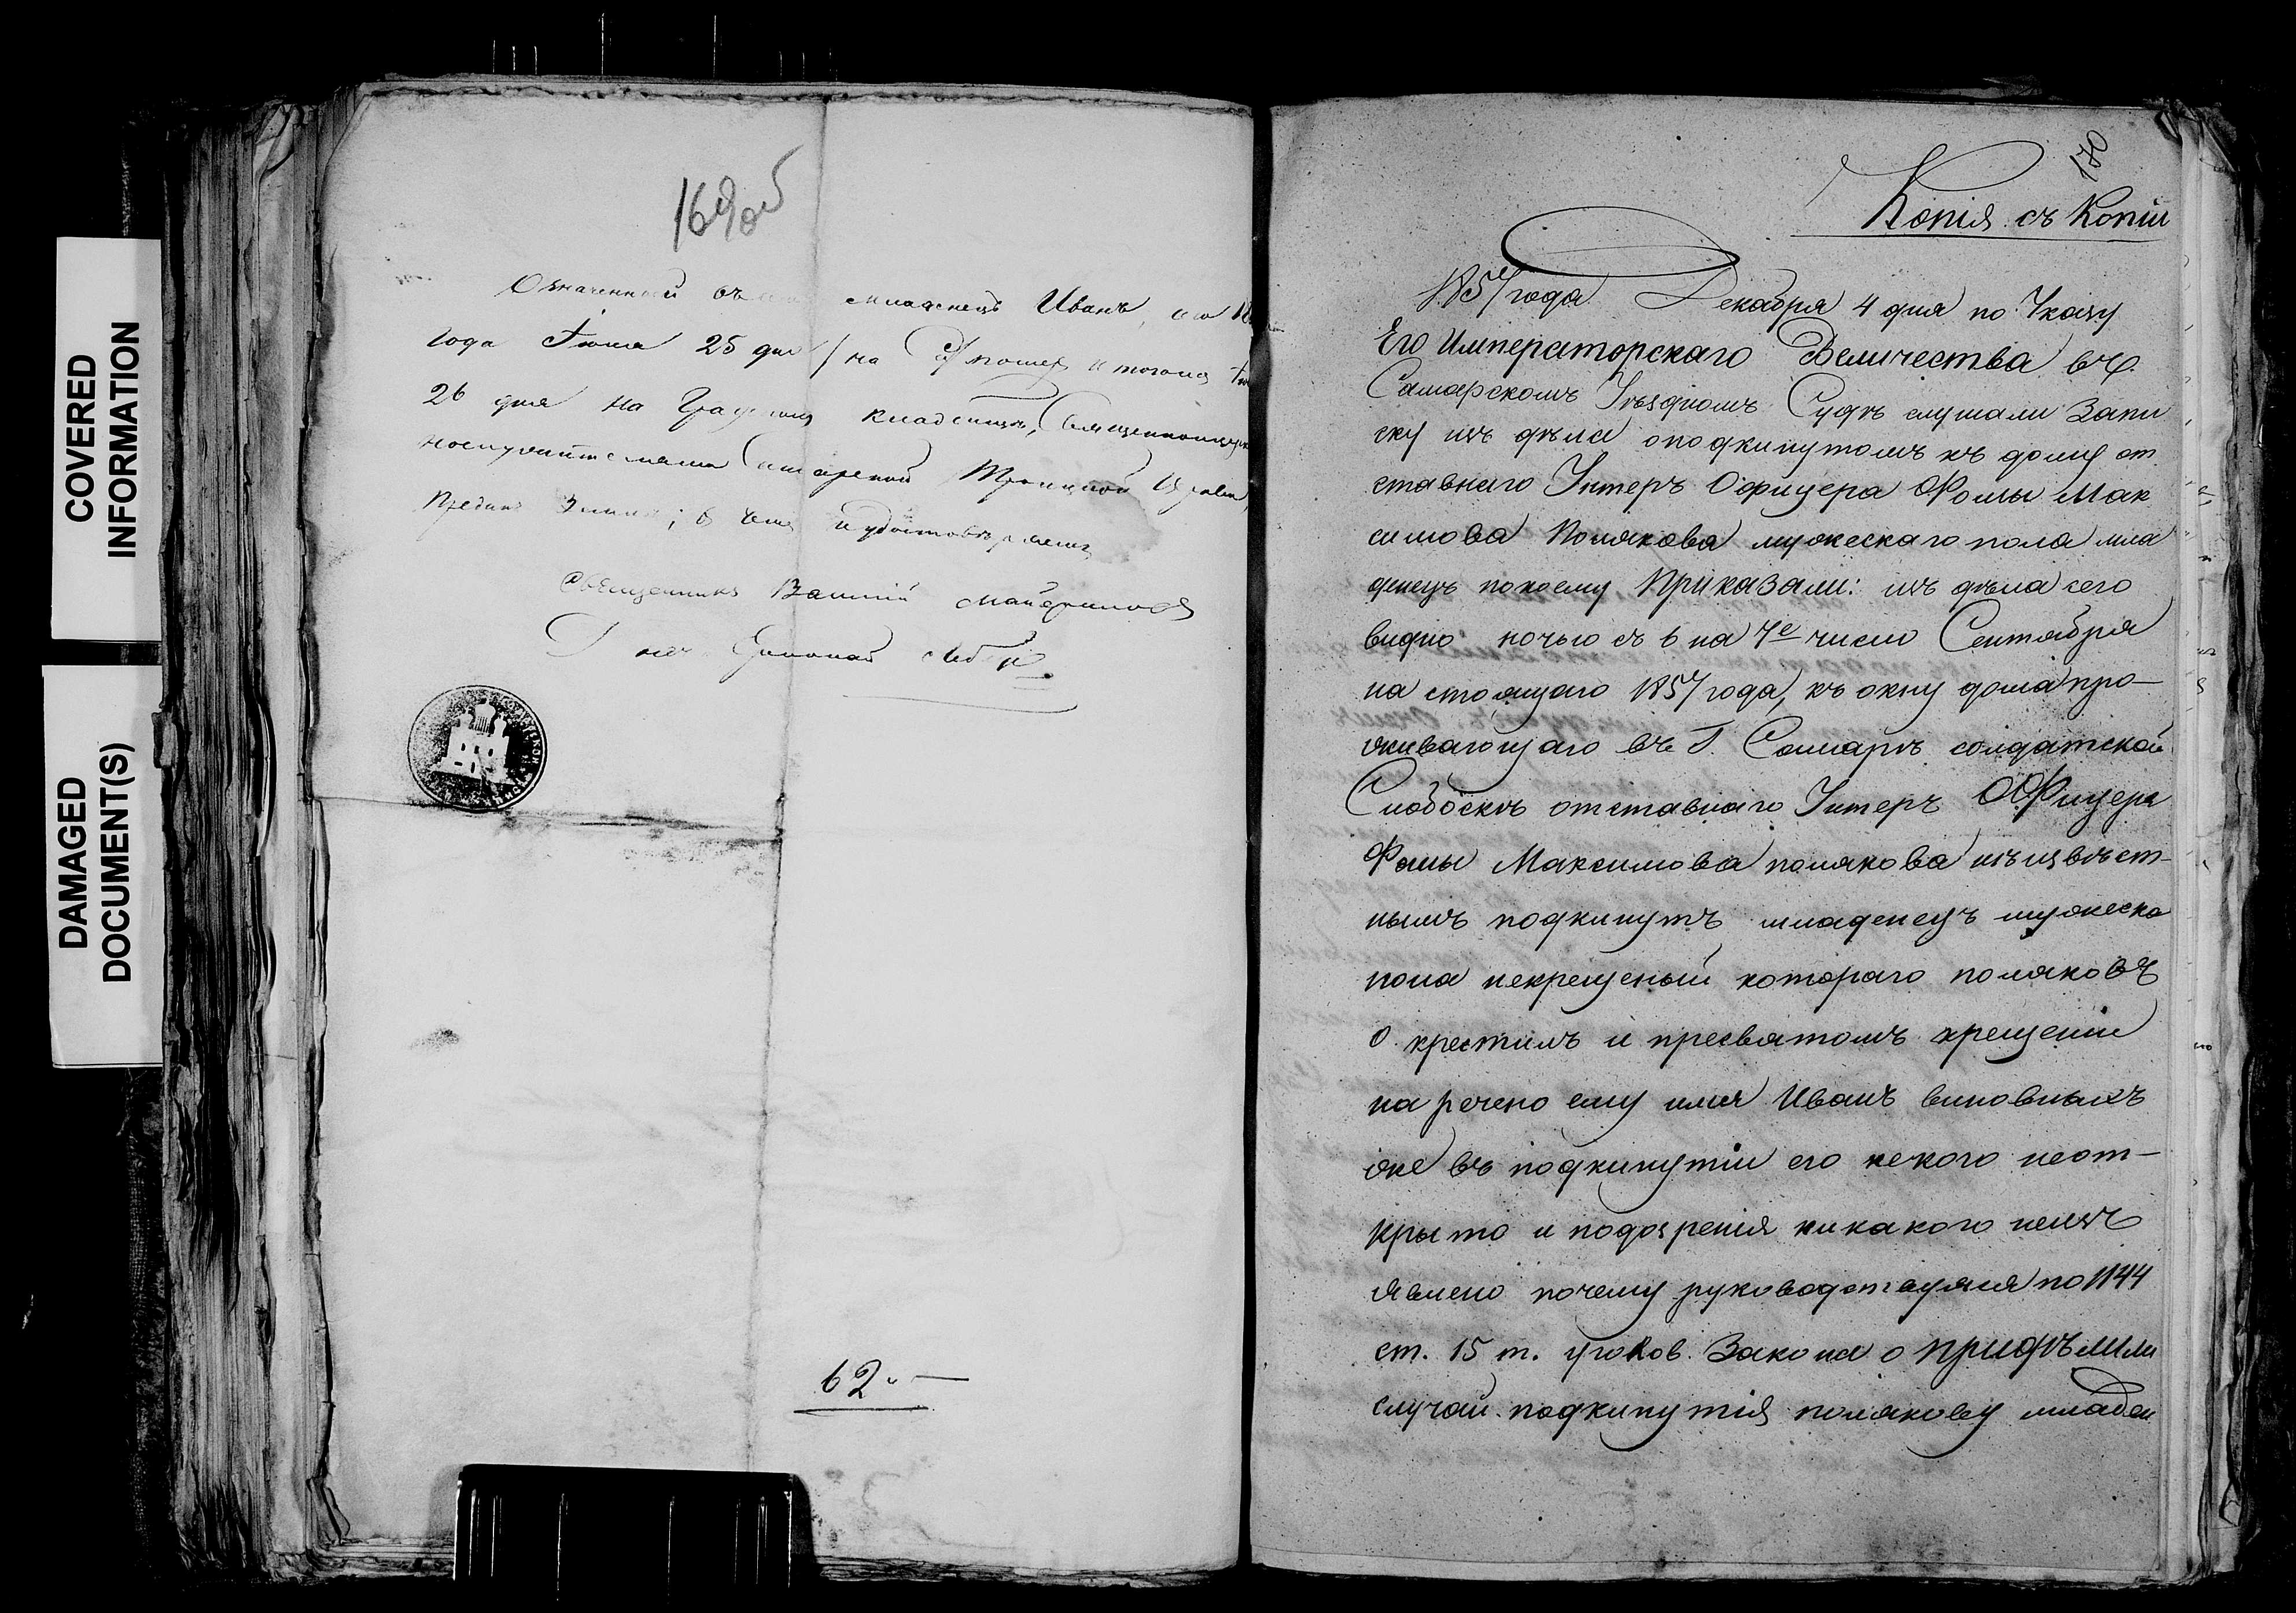 COVERED
INFORMATION
DAMAGED
DOCUMENT(S)
169об
Означенный младенецъ Иванъ,
года Іюня 25 дня
26 дня на кладбищѣ, Священноцерков
нослужителями Самарской Троицкой Церкви,
преданъ земли; в чемъ и удостовѣряемъ
Священникъ
62 „ —
170
Копія съ Копіи
1857 года Декабря 4 дня по Указу
Его Императорскаго Величества въ
Самарскомъ Уѣздномъ Судѣ слушали Запи
ску изъ дѣла о подкинутомъ къ дому от
ставнаго Унтеръ Офицера Фомы Мак
симова Полякова мужескаго пола мла
денецъ по коему Приказали: изъ дѣла сего
видно ночью съ 6 на 7е число Сентября
на стоящаго 1857 года, къ окну дома про-
живающаго въ Г. Самарѣ солдатской
Слободкѣ отставнаго Унтеръ Офицера
Фомы Максимова Полякова неизвѣст-
нымъ подкинутъ младенецъ мужеска
пола некрещеный котораго Поляковъ
о крестилъ и пресвятомъ крещеніи
на речено ему имя Иванъ виновныхъ
же въ подкинутіи его некого неот-
крыто и подозренія никакого неизъ
явлено почему руководствуяся по 1144
ст. 15 т. уголов. Закона опридѣлили
случай подкинутія Полякову младен